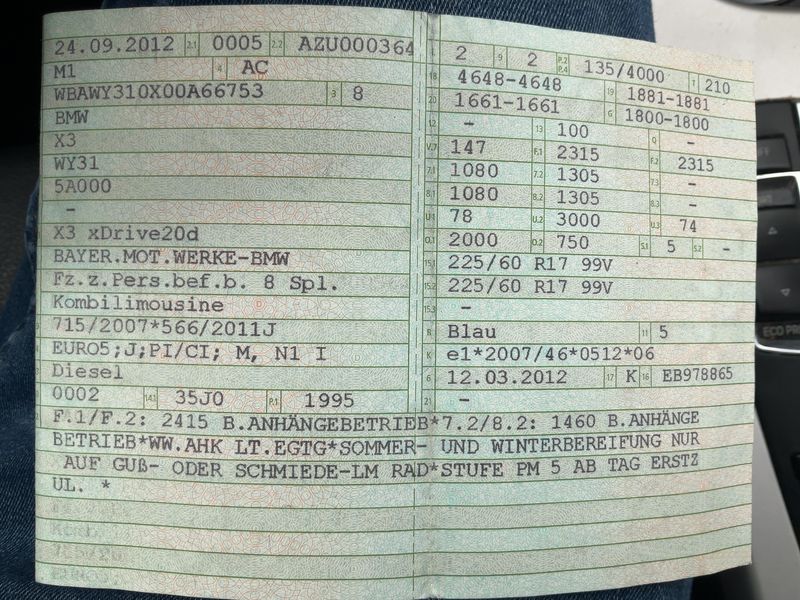 24.09.2012 2.1 0005 2.2 AZU000364
M1 4 AC
WBAWY310X00A66753 3 8
BMW
X3
WY31
5A000
-
X3 xDrive20d
BAYER.MOT.WERKE-BMW
Fz.z.Pers.bef.b. 8 Spl.
Kombilimousine
715/2007*566/2011J
EURO5;J;PI/CI; M, N1 I
Diesel
0002 14.1 35J0 P.1 1995
L 2 9 2 P.2 P.4 135/4000 T 210
18 4648-4648 19 1881-1881
20 1661-1661 G 1800-1800
12 - 13 100 Q -
V.7 147 F.1 2315 F.2 2315
7.1 1080 7.2 1305 7.3 -
8.1 1080 8.2 1305 8.3 -
U.1 78 U.2 3000 U.3 74
O.1 2000 O.2 750 S.1 5 S.2 -
15.1 225/60 R17 99V
15.2 225/60 R17 99V
15.3 -
R Blau 11 5
K e1*2007/46*0512*06
6 12.03.2012 17 K 16 EB978865
21 -
F.1/F.2: 2415 B.ANHÄNGEBETRIEB*7.2/8.2: 1460 B.ANHÄNGE
BETRIEB*WW.AHK LT.EGTG*SOMMER- UND WINTERBEREIFUNG NUR
AUF GUß- ODER SCHMIEDE-LM RAD*STUFE PM 5 AB TAG ERSTZ
UL. *
ECO PRO